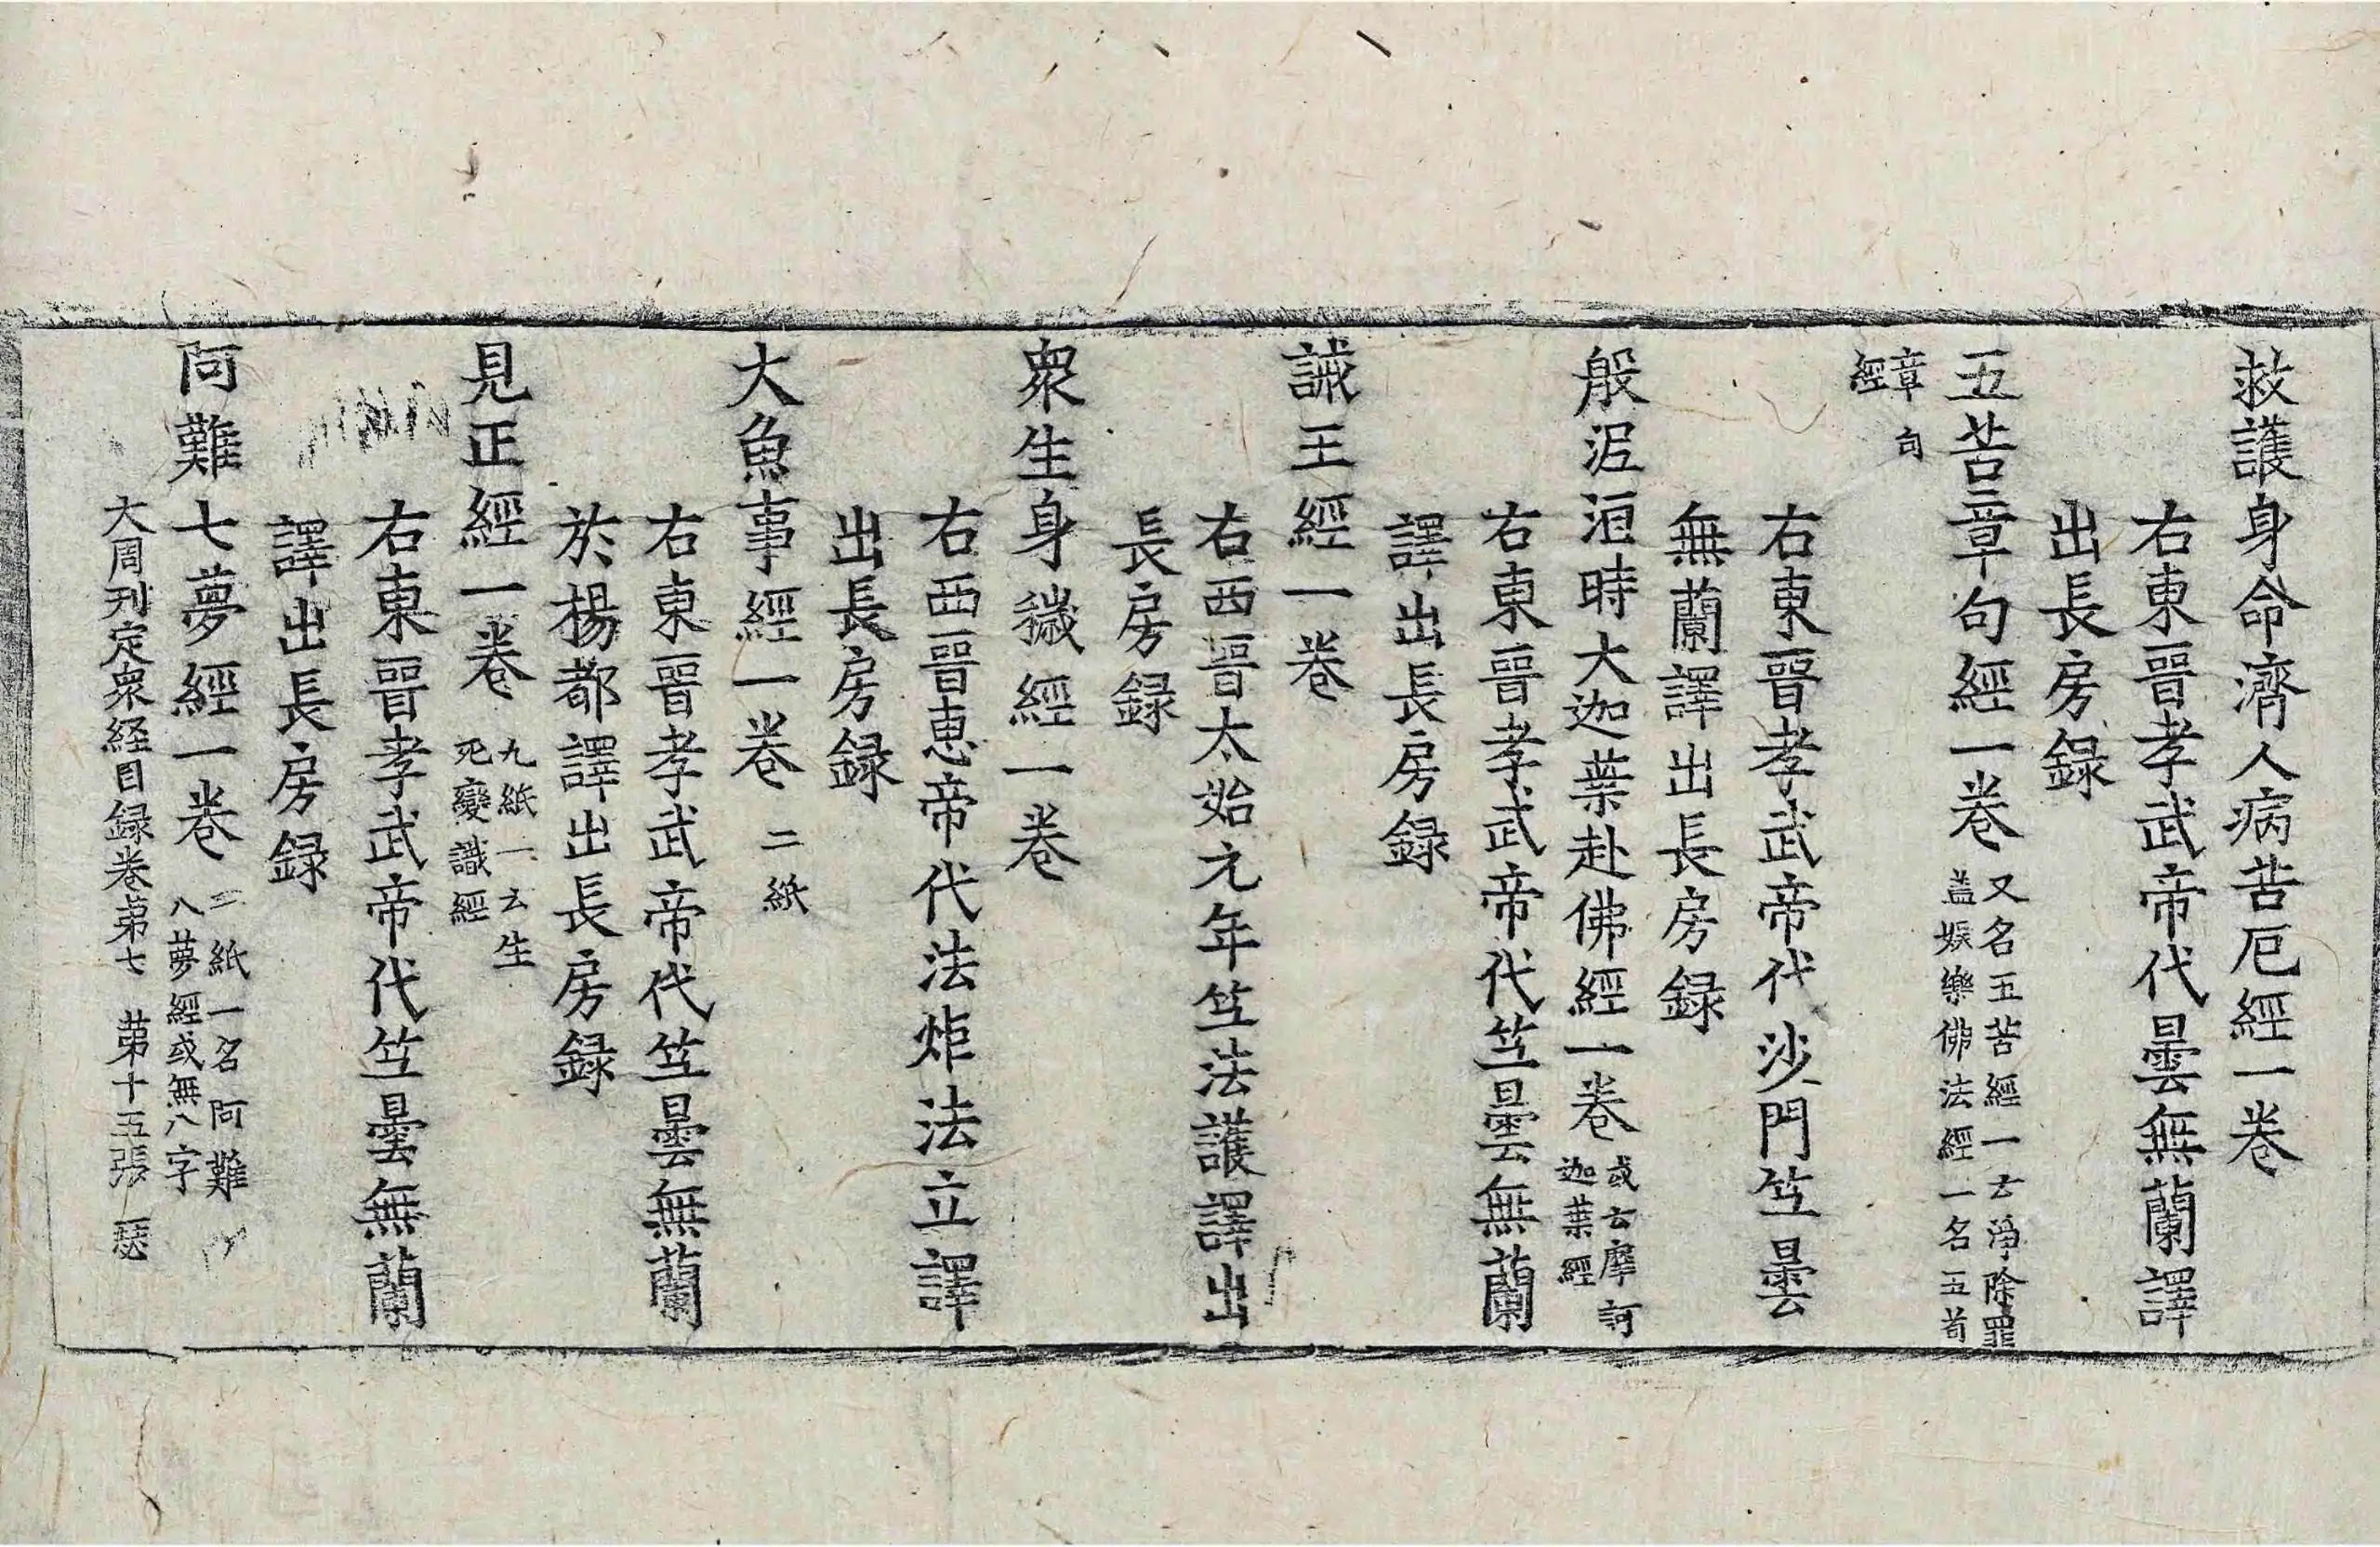 救護身命濟人病苦厄經一卷
右東晉孝武帝代曇無蘭譯
出長房録
五苦章句經一卷
又名五苦經一云淨除罪
盖娛樂佛法經一名五苟
章句
經
右東晉孝武帝代沙門竺曇
無蘭譯出長房録
般泥洹時大迦葉赴佛經一卷
或云摩訶
迦葉經
右東晉孝武帝代竺曇無蘭
譯出長房録
誡王經一卷
右西晉太始元年竺法護譯出
長房録
衆生身穢經一卷
右西晉惠帝代法炬法立譯
出長房録
大魚事經一卷 二紙
右東晉孝武帝代竺曇無蘭
於楊都譯出長房録
見正經一卷
九紙一云生
死變識經
右東晉孝武帝代竺曇無蘭
譯出長房録
阿難七夢經一卷
二紙一名阿難
八夢經或無八字
大周刊定衆経目録卷第七 第十五張 瑟